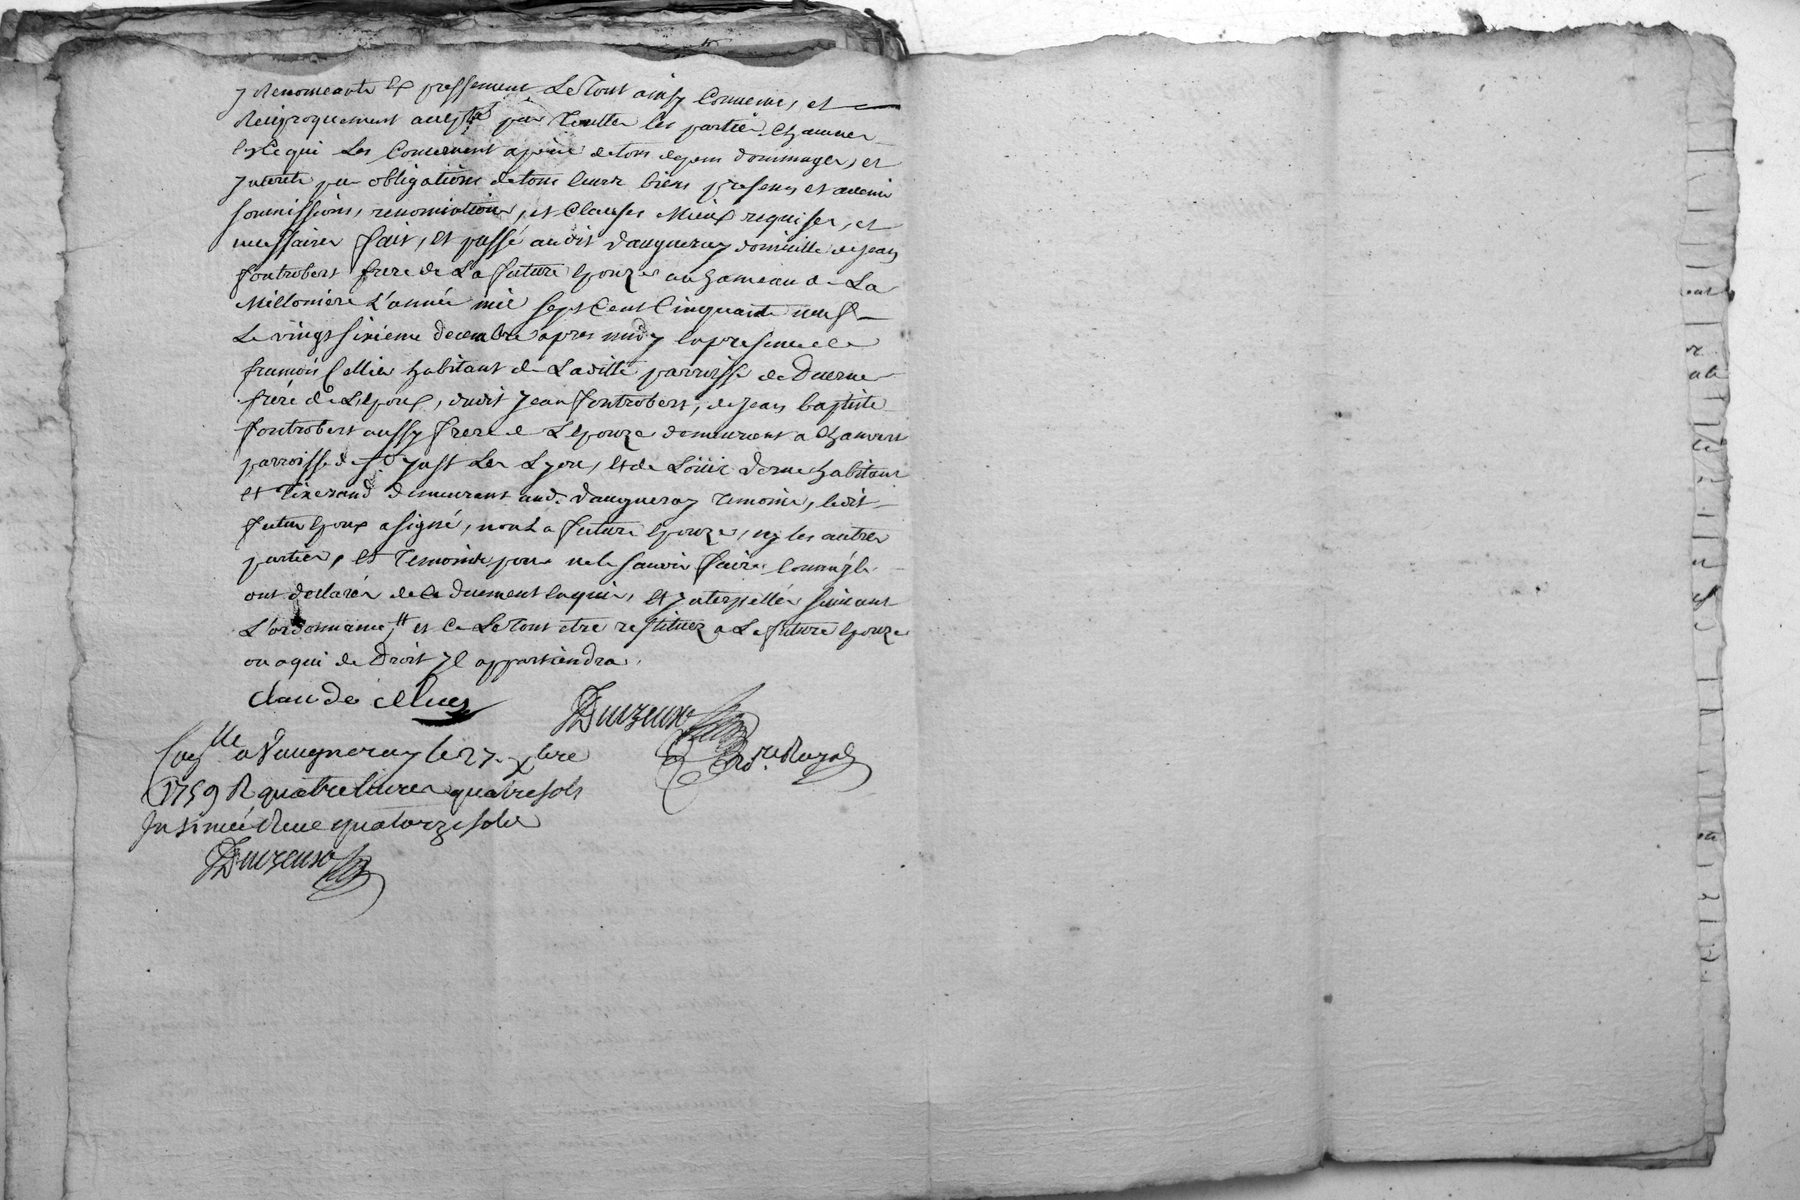 y Renonceants Expressement Le Tout ainsy Convenu, et
Reciproquement accepté par Toutte les partie chacunes
En ce qui Les Concernent a peine de tous depens dommages, et
Interets par obligations de tous leurs biens presens et avenir
soumissions, renonciations, et Clauses Mieux requises, et
necessaires fait, Et passé audit Vaugneray domicille de Jean
fontrobert frere de La future Epouze au hameau de La
Milloniere L'année mil sept Cent Cinquante neuf
Le vingt sixieme decembre apres midy En presence de
francois Cellier habitant de Laditte parroisse de Duerne
frere de L'Epoux, dudit Jean fontrobert, de Jean baptiste
fontrobert aussy frere de L'Epouze demeurent a Chanvert
parroisse de St Just Les Lyon, Et de Loüis habitant
et Tixerand demeurent aud. Vaugneray Temoins, ledit
futur Epoux a signé, non La future Epouze, ny les autres
parties, Et Temoins pour ne le scavoir faire comme ils
ont declarés de ce duement Enquis, Et Interpellés suivant
L'ordonnance, et ce Le Tout etre restituez a La future Epouze
ou a qui de Droit Il appartiendra.
Claude
Conlle a Vaugneray le 27. xbre
1759 R quatre livres quatre sols
Insinué Receu quatorze sols